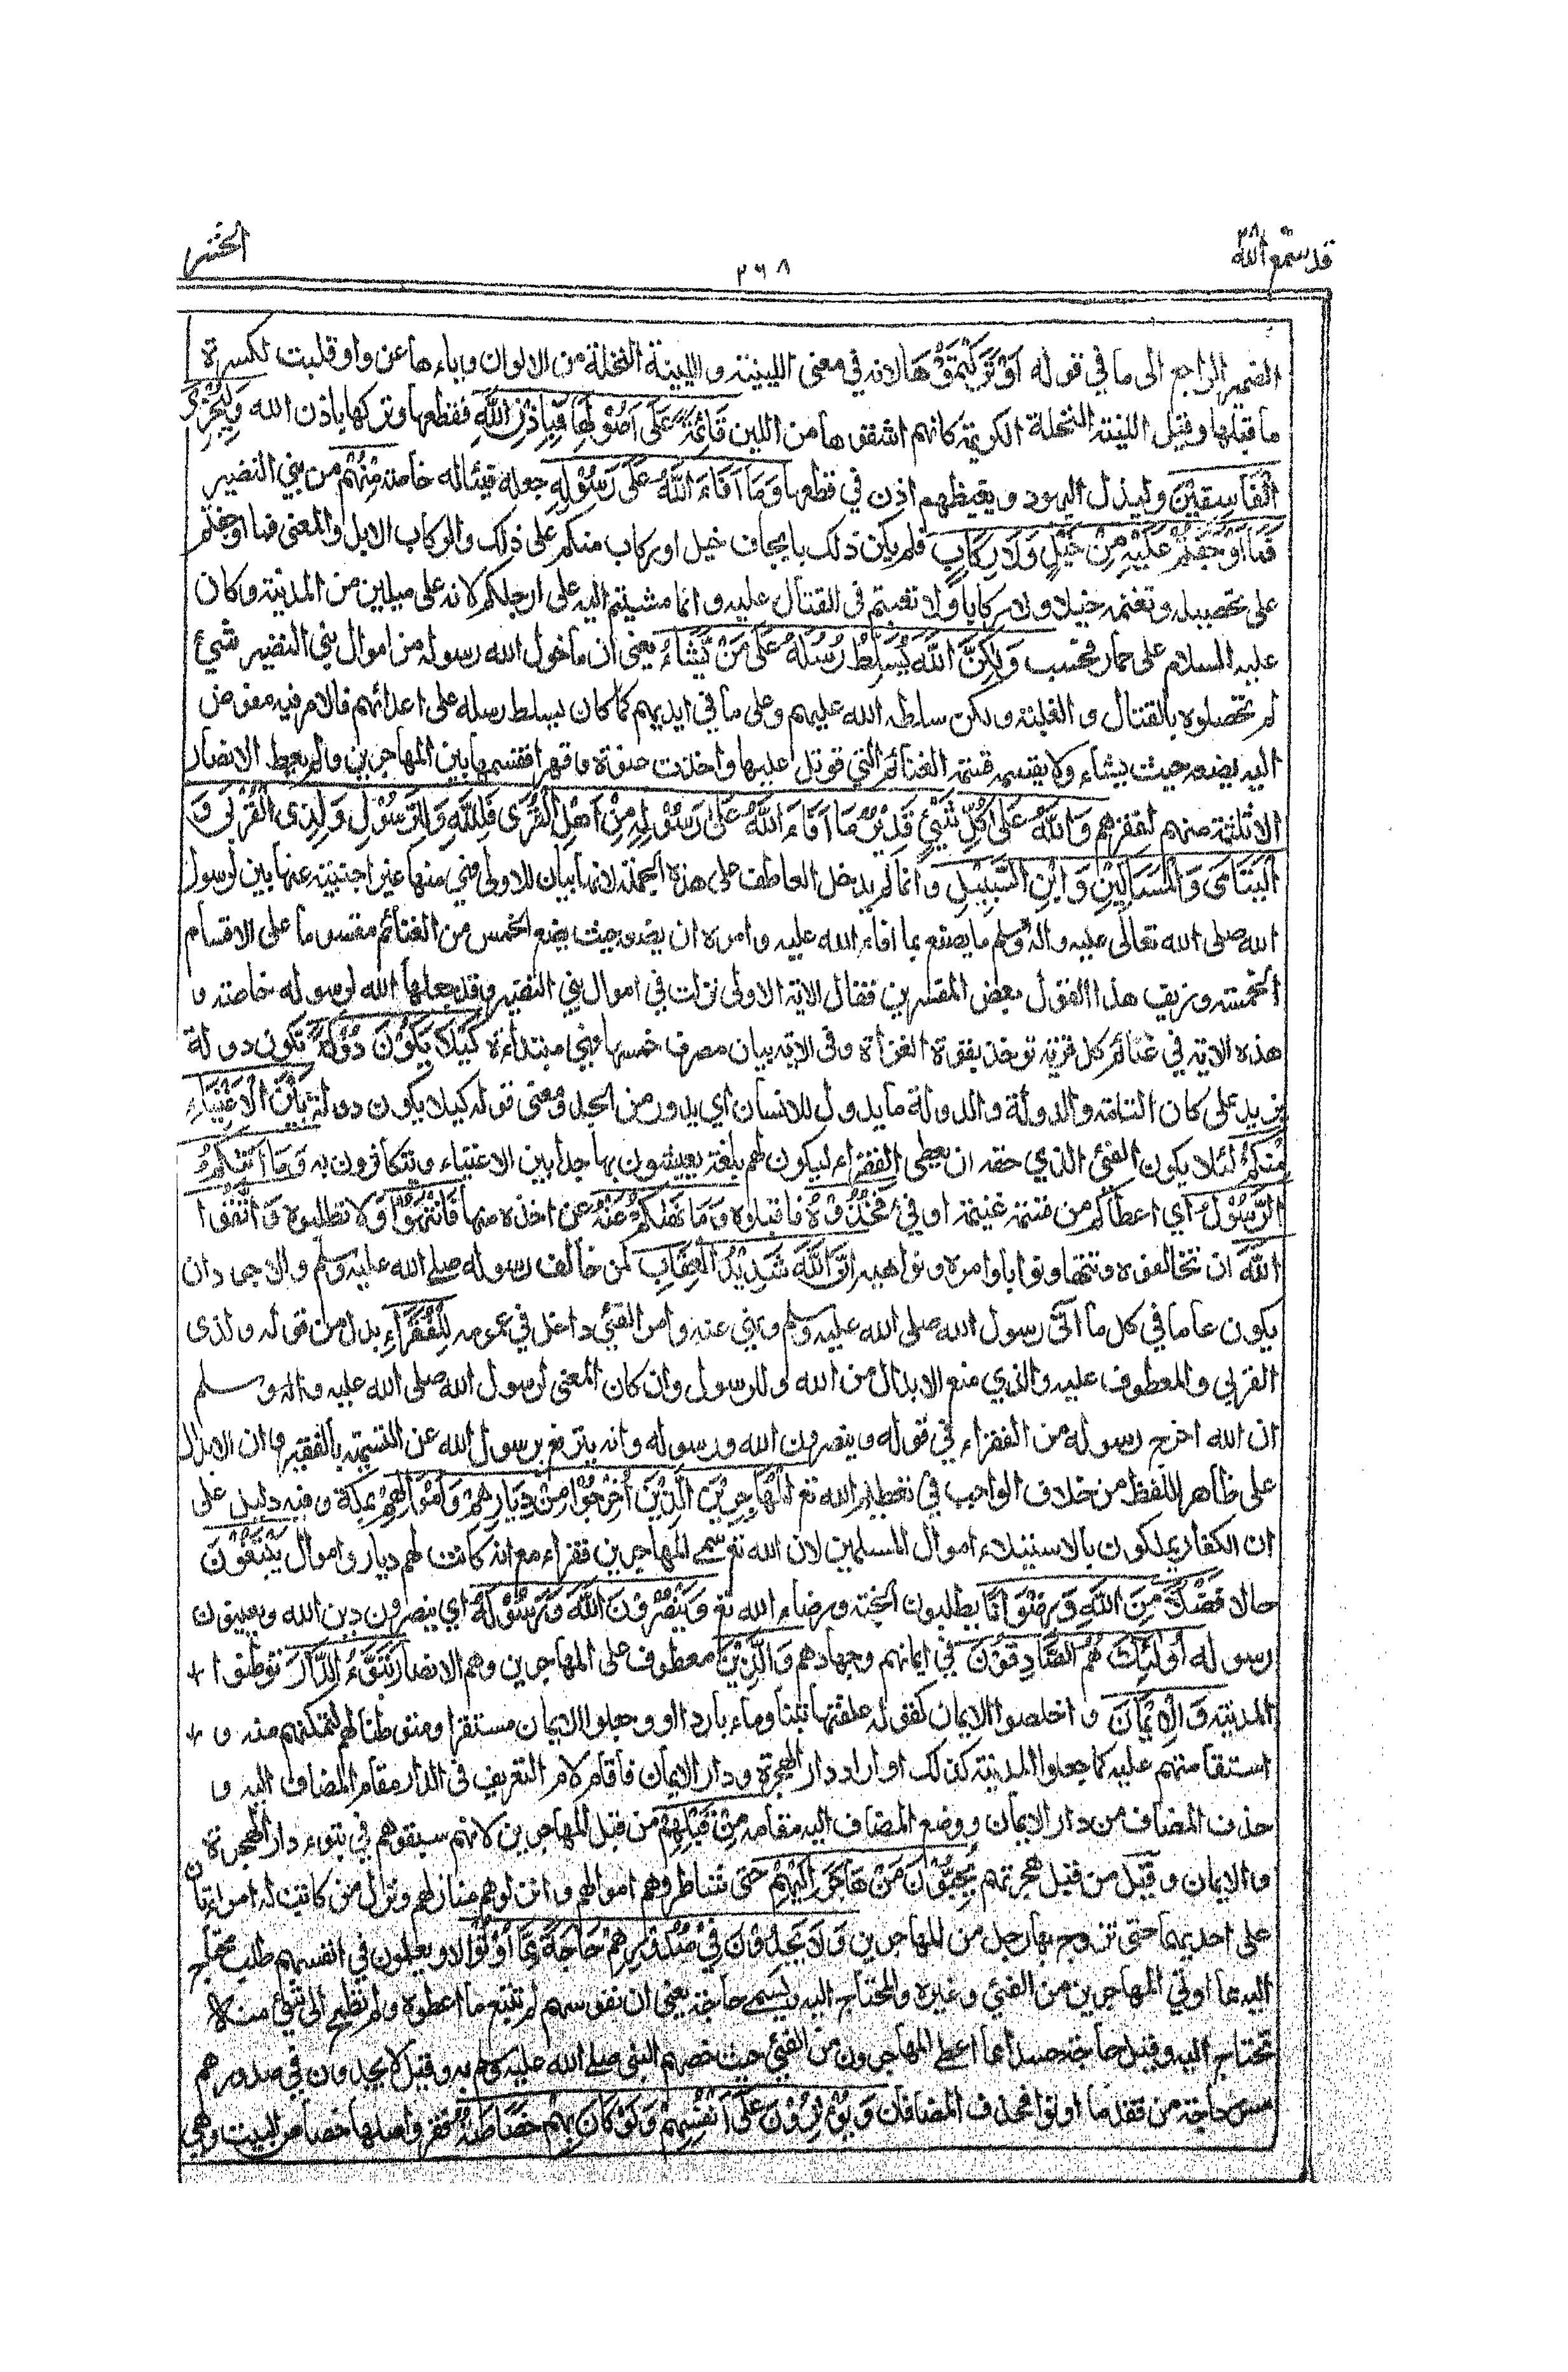 قد سمع الله ٢٨
٣٦٨
الحشر
الضمير الراجع الى ما في قوله اَوْ تَرَكْتُمُوْهَا لانه في معنى اللينة و اللينة النخلة من الالوان وياءها عن واو قلبت لكسرة
ما قبلها وقيل اللينة النخلة الكريمة كانهم اشتقوها من اللين قَائِمَةً عَلٰى اُصُوْلِهَا فَبِاِذْنِ اللّٰهِ فقطعها وتركها باذن الله وَلِيُخْزِيَ
الْفَاسِقِيْنَ وليذل اليهود ويغيظهم اذن في قطعها وَمَا اَفَاءَ اللّٰهُ عَلٰى رَسُوْلِهِ جعله فيئاله خاصة مِنْهُمْ من بني النضير
فَمَا اَوْجَفْتُمْ عَلَيْهِ مِنْ خَيْلٍ وَلَا رِكَابٍ فلم يكن ذلك بايجاف خيل او ركاب منكم على ذلك والركاب الابل والمعنى فما اوجفتم
على تحصيله وتغنمه خيلا ولا ركابا ولا تعبتم في القتال عليه و انما مشيتم اليه على ارجلكم لانه على ميلين من المدينة وكان
عليه السلام على حمار فحسب وَلٰكِنَّ اللّٰهَ يُسَلِّطُ رُسُلَهُ عَلٰى مَنْ يَّشَاءُ يعنى ان ما خول الله رسوله من اموال بني النضير شئ
لم تحصلوه بالقتال و الغلبة ولكن سلطه الله عليهم وعلى ما في ايديهم كما كان يسلط رسله على اعدائهم فالامر فيه مفوض
اليه يضعه حيث يشاء ولا يقسمه قسمة الغنائم التي قوتل عليها واخذت عنوة وقهرا فقسمها بين المهاجرين ولم يعط الانصار
الا ثلثة منهم لفقرهم وَاللّٰهُ عَلٰى كُلِّ شَيْئٍ قَدِيْرٌ مَا اَفَاءَ اللّٰهُ عَلٰى رَسُوْلِهِ مِنْ اَهْلِ الْقُرٰى فَلِلّٰهِ وَلِلرَّسُوْلِ وَلِذِى الْقُرْبٰى وَ
الْيَتَامٰى وَالْمَسَاكِيْنِ وَابْنِ السَّبِيْلِ و انما لم يدخل العاطف على هذه الجملة لانها بيان للاولى فهي منها غير اجنبية عنها بين لرسول
الله صلى الله تعالى عليه واله وسلم ما يصنع بما افاء الله عليه و امره ان يضعه حيث يضع الخمس من الغنائم مقسوما على الاقسام
الخمسة وزيف هذا القول بعض المفسرين فقال الاية الاولى نزلت في اموال بني النضير وقد جعلها الله لرسوله خاصة و
هذه الاية في غنائم كل قرية توخذ بقوة الغزاة وفى الاية بيان مصرف خمسها فهي مبتداءة كَيْلَا يَكُوْنَ دُوْلَةً تكون دولة
يزيد على كان التامة والدولة والدولة ما يدول للانسان اي يدور من الجد ومعنى قوله كيلا يكون دولة بَيْنَ الْاَغْنِيَاءِ
مِنْكُمْ لئلا يكون الفئ الذي حقه ان يعطى الفقراء ليكون لهم بلغة يعيشون بها جدا بين الاغنياء ويتكاثرون به وَمَا اٰتٰىكُمُ
الرَّسُوْلُ اي اعطاكم من قسمة غنيمة او فئ فَخُذُوْهُ فاقبلوه وَمَا نَهٰىكُمْ عَنْهُ عن اخذه منها فَانْتَهُوْا ولا تطلبوه وَاتَّقُوا
اللّٰهَ ان تخالفوه وتتهاونوا باوامره ونواهيه اِنَّ اللّٰهَ شَدِيْدُ الْعِقَابِ لمن خالف رسوله صلى الله عليه وسلم والاجود ان
يكون عاما في كل ما اتى رسول الله صلى الله عليه وسلم ونهى عنه وامر الفئ داخل في عمومه لِلْفُقَرَاءِ بدل من قوله ولذى
القربى والمعطوف عليه والذي منع الابدال من الله وللرسول وان كان المعنى لرسول الله صلى الله عليه واله وسلم
ان الله اخرج رسوله من الفقراء في قوله وينصرون الله ورسوله وانه يترفع برسول الله عن التسمية بالفقير وان الابدال
على ظاهر اللفظ من خلاف الواجب في تعظيم الله تع الْمُهَاجِرِيْنَ الَّذِيْنَ اُخْرِجُوْا مِنْ دِيَارِهِمْ وَاَمْوَالِهِمْ بمكة وفيه دليل على
ان الكفار يملكون بالاستيلاء اموال المسلمين لان الله تع سمى المهاجرين فقراء مع انه كانت لهم ديار واموال يَبْتَغُوْنَ
حالا فَضْلًا مِّنَ اللّٰهِ وَرِضْوَانًا يطلبون الجنة ورضاء الله تع وَيَنْصُرُوْنَ اللّٰهَ وَرَسُوْلَهُ اي ينصرون دين الله ويعينون
رسوله اُولٰئِكَ هُمُ الصَّادِقُوْنَ في ايمانهم وجهادهم وَالَّذِيْنَ معطوف على المهاجرين وهم الانصار تَبَوَّءُ الدَّارَ توطنوا
المدينة وَالْاِيْمَانَ و اخلصوا الايمان كقوله علفتها تبنا وماء باردا او وجعلوا الايمان مستقرا ومتوطنا لهم لتمكنهم منه و
استقامتهم عليه كما جعلوا المدينة كذلك او اراد دار الهجرة ودار الايمان فاقام لام التعريف في الدار مقام المضاف اليه و
حذف المضاف من دار الايمان ووضع المضاف اليه مقامه مِنْ قَبْلِهِمْ من قبل المهاجرين لانهم سبقوهم في تبوء دار الهجرة
والايمان وقيل من قبل هجرتهم يُحِبُّوْنَ مَنْ هَاجَرَ اِلَيْهِمْ حتى شاطروهم اموالهم و انزلوهم منازلهم ونزل من كانت له امراتان
على احديهما حتى تزوج بها رجل من المهاجرين وَلَا يَجِدُوْنَ فِيْ صُدُوْرِهِمْ حَاجَةً مِّمَّا اُوْتُوْا لا ويعلمون في انفسهم طلب محتاج
اليه مما اوتي المهاجرين من الفئ وغيره والمحتاج اليه يسمى حاجة يعنى ان نفوسهم لم تتبع ما اعطوه ولم تطمح الى شئ منه لا
تحتاج اليه وقيل حاجة حسدا مما اعطى المهاجرون من الفئ حيث خصهم النبي صلى الله عليه وسلم به وقيل لا يجدون في صدورهم
مس حاجة من فقد ما اوتوا فحذف المضافان وَيُؤْثِرُوْنَ عَلٰى اَنْفُسِهِمْ وَلَوْ كَانَ بِهِمْ خَصَاصَةٌ فقر واصلها خصاص البيت وهي